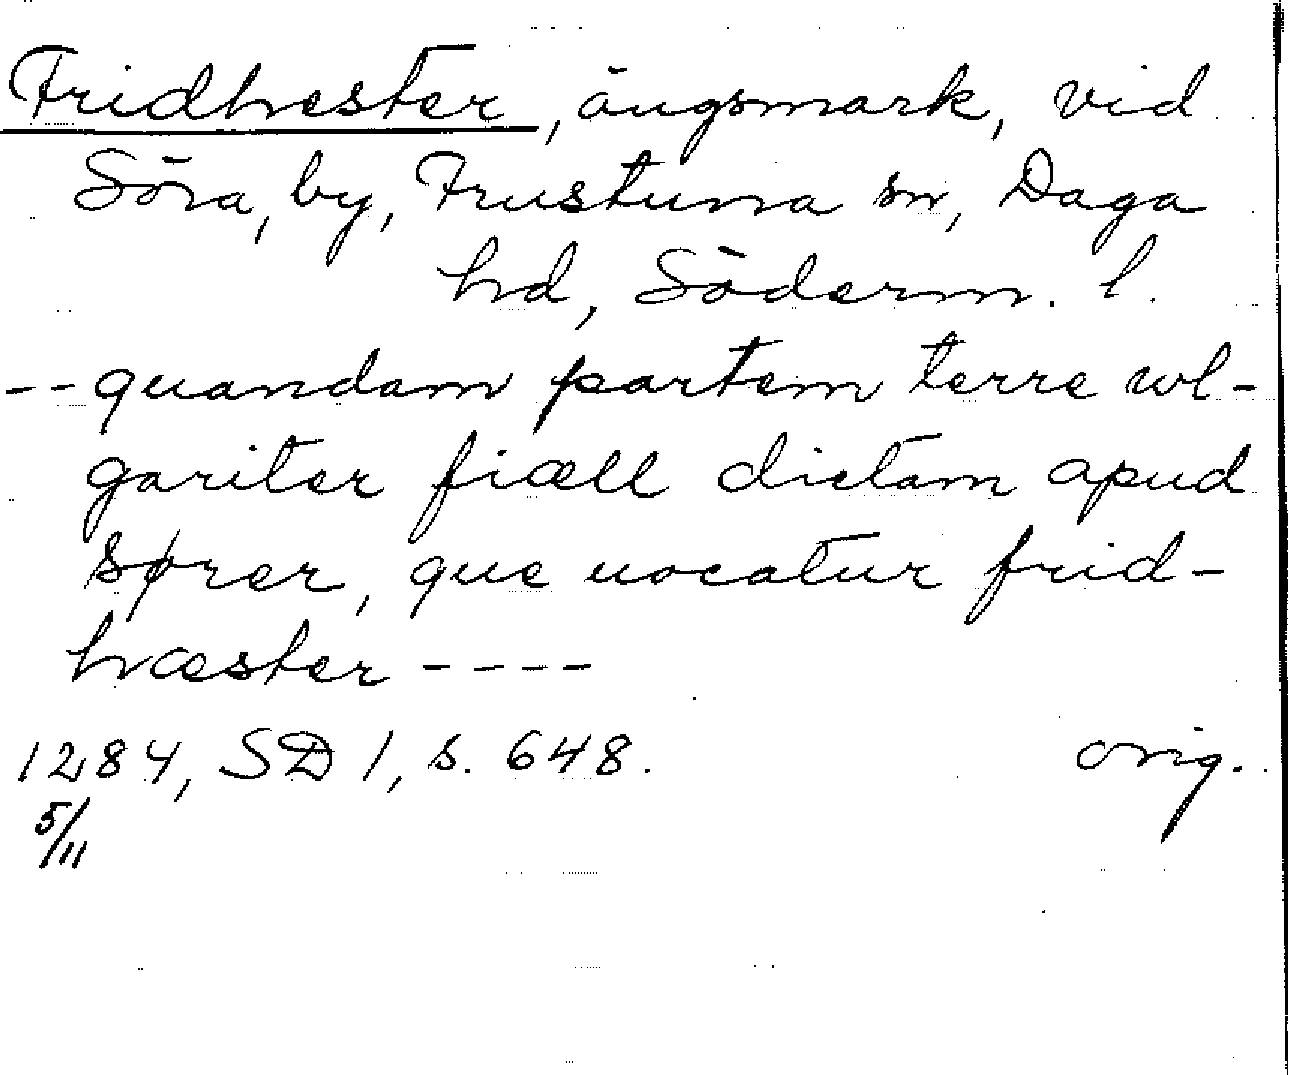 Fridhvester, ängsmark, vid
Söra, by, Frustuna sn, Daga
hd, Söderm. l.
-- quandam partem terre wl-
gariter fiæll dictam apud
sører, que uocatur frid-
hvæster ----
1284, SD 1, s. 648. orig.
5/11